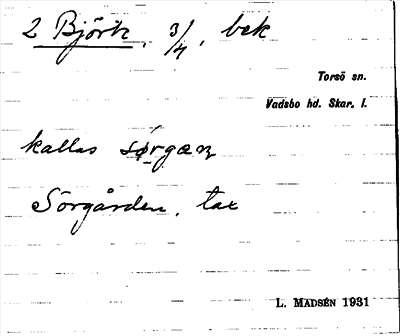 2 Björk, 3/4, bek
Torsö sn.
Vadsbo hd. Skar. l.
kallas
Sörgården, tax
L. MADSÉN 1931